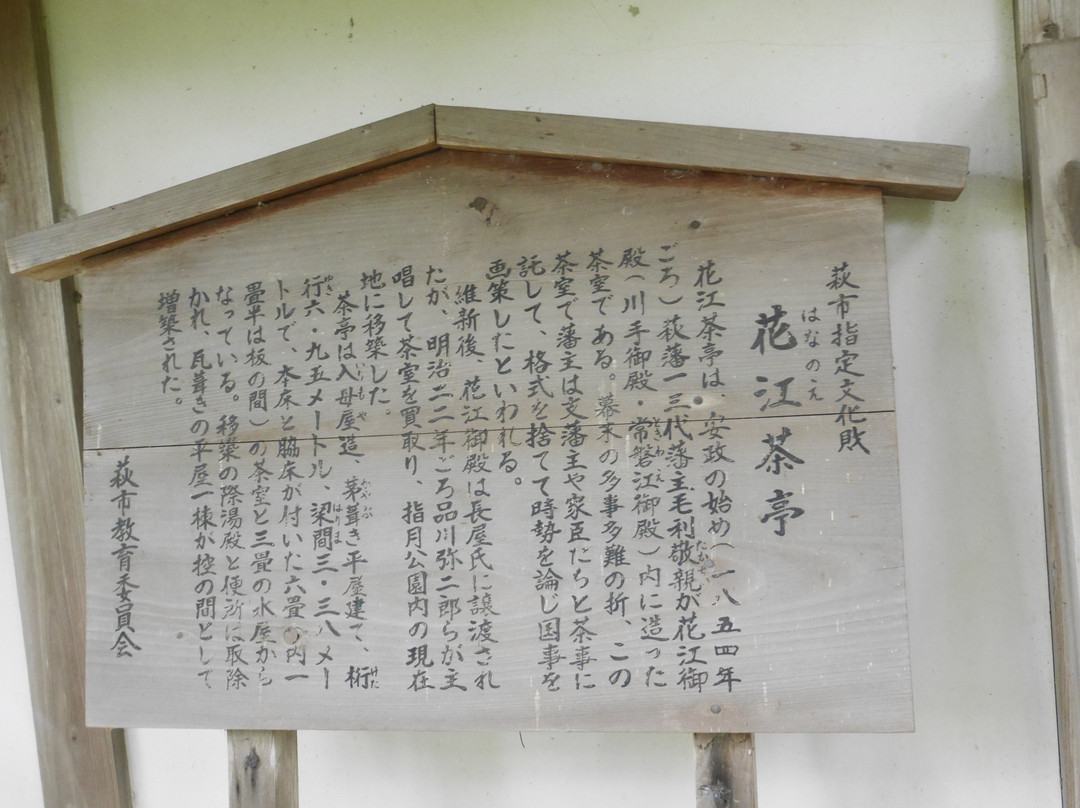 萩市指定文化財
はなのえ
花江茶亭
花江茶亭は、安政の始め(一八五四年
ごろ)萩藩一三代藩主毛利敬親が花江御
殿(川手御殿・常磐江御殿)内に造った
茶室である。幕末の多事多難の折、この
茶室で藩主は支藩主や家臣たちと茶事に
託して、格式を捨てて時勢を論じ国事を
画策したといわれる。
維新後、花江御殿は長屋氏に譲渡され
たが、明治二二年ごろ品川弥二郎らが主
唱して茶室を買取り、指月公園内の現在
地に移築した。
茶亭は入母屋造、茅葺き平屋建て、桁
行六・九五メートル、梁間三・三八メー
トルで、本床と脇床が付いた六畳(内一
畳半は板の間)の茶室と三畳の水屋から
なっている。移築の際湯殿と便所は取除
かれ、瓦葺きの平屋一棟が控の間として
増築された。
萩市教育委員会